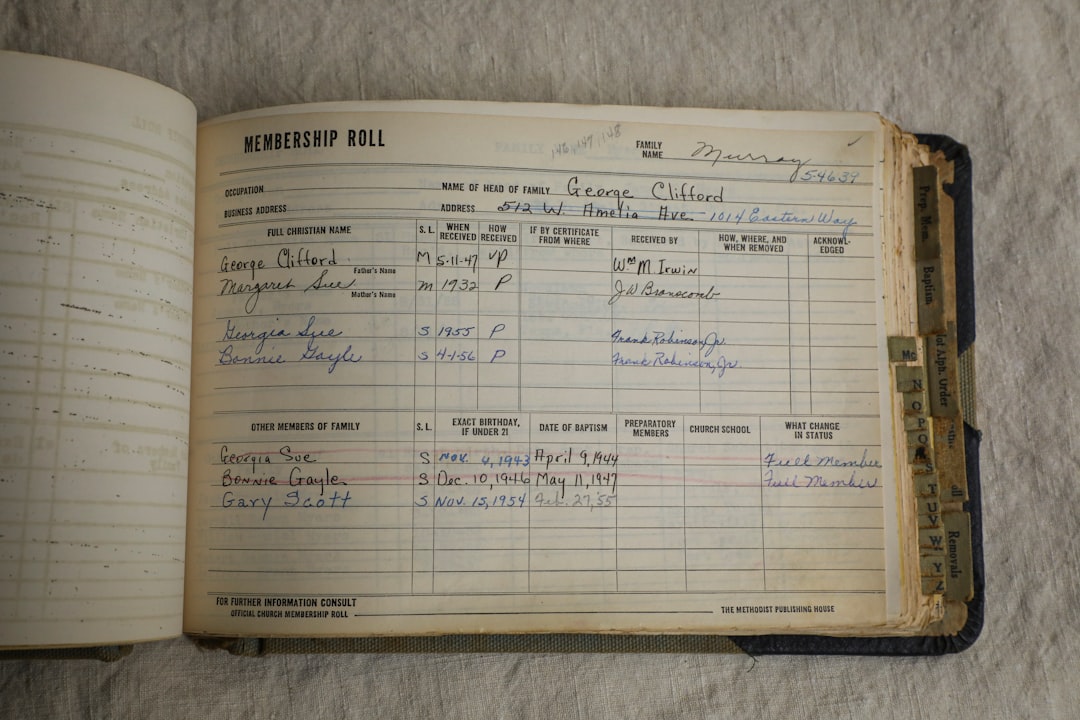 MEMBERSHIP ROLL
146 147 148
FAMILY NAME Murray
54639
OCCUPATION NAME OF HEAD OF FAMILY George Clifford
BUSINESS ADDRESS ADDRESS 512 W. Amelia Ave. - 1014 Eastern Way
FULL CHRISTIAN NAME S. L. WHEN RECEIVED HOW RECEIVED IF BY CERTIFICATE FROM WHERE RECEIVED BY HOW, WHERE, AND WHEN REMOVED ACKNOWL- EDGED
George Clifford M 5-11-47 VP Wm M Irwin
Father's Name
Margaret Sue m 1932 P J W Branscomb
Mother's Name
Georgia Sue S 1955 P Frank Robinson, Jr.
Bonnie Gayle S 4-1-56 P Frank Robinson, Jr.
OTHER MEMBERS OF FAMILY S. L. EXACT BIRTHDAY, IF UNDER 21 DATE OF BAPTISM PREPARATORY MEMBERS CHURCH SCHOOL WHAT CHANGE IN STATUS
Georgia Sue S Nov. 4, 1943 April 9, 1944 Full Member
Bonnie Gayle S Dec. 10, 1946 May 11, 1947 Full Member
Gary Scott S Nov. 15, 1954 Feb. 27, '55
FOR FURTHER INFORMATION CONSULT
OFFICIAL CHURCH MEMBERSHIP ROLL THE METHODIST PUBLISHING HOUSE
Prep. Mem
Baptism
Alph. Order
Removals
Mc
N
O
P
Q
S
T
U
V
W
Y
Z